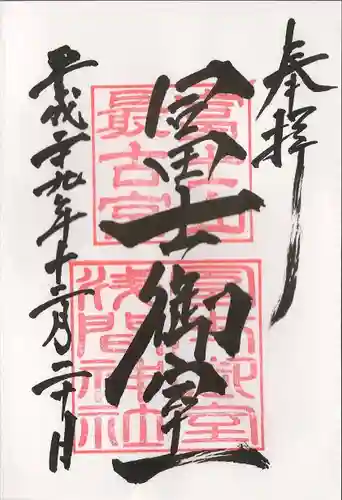 奉拝
冨士御室
富士山
最古宮
冨士御室
浅間神社
平成二十九年十二月二十日